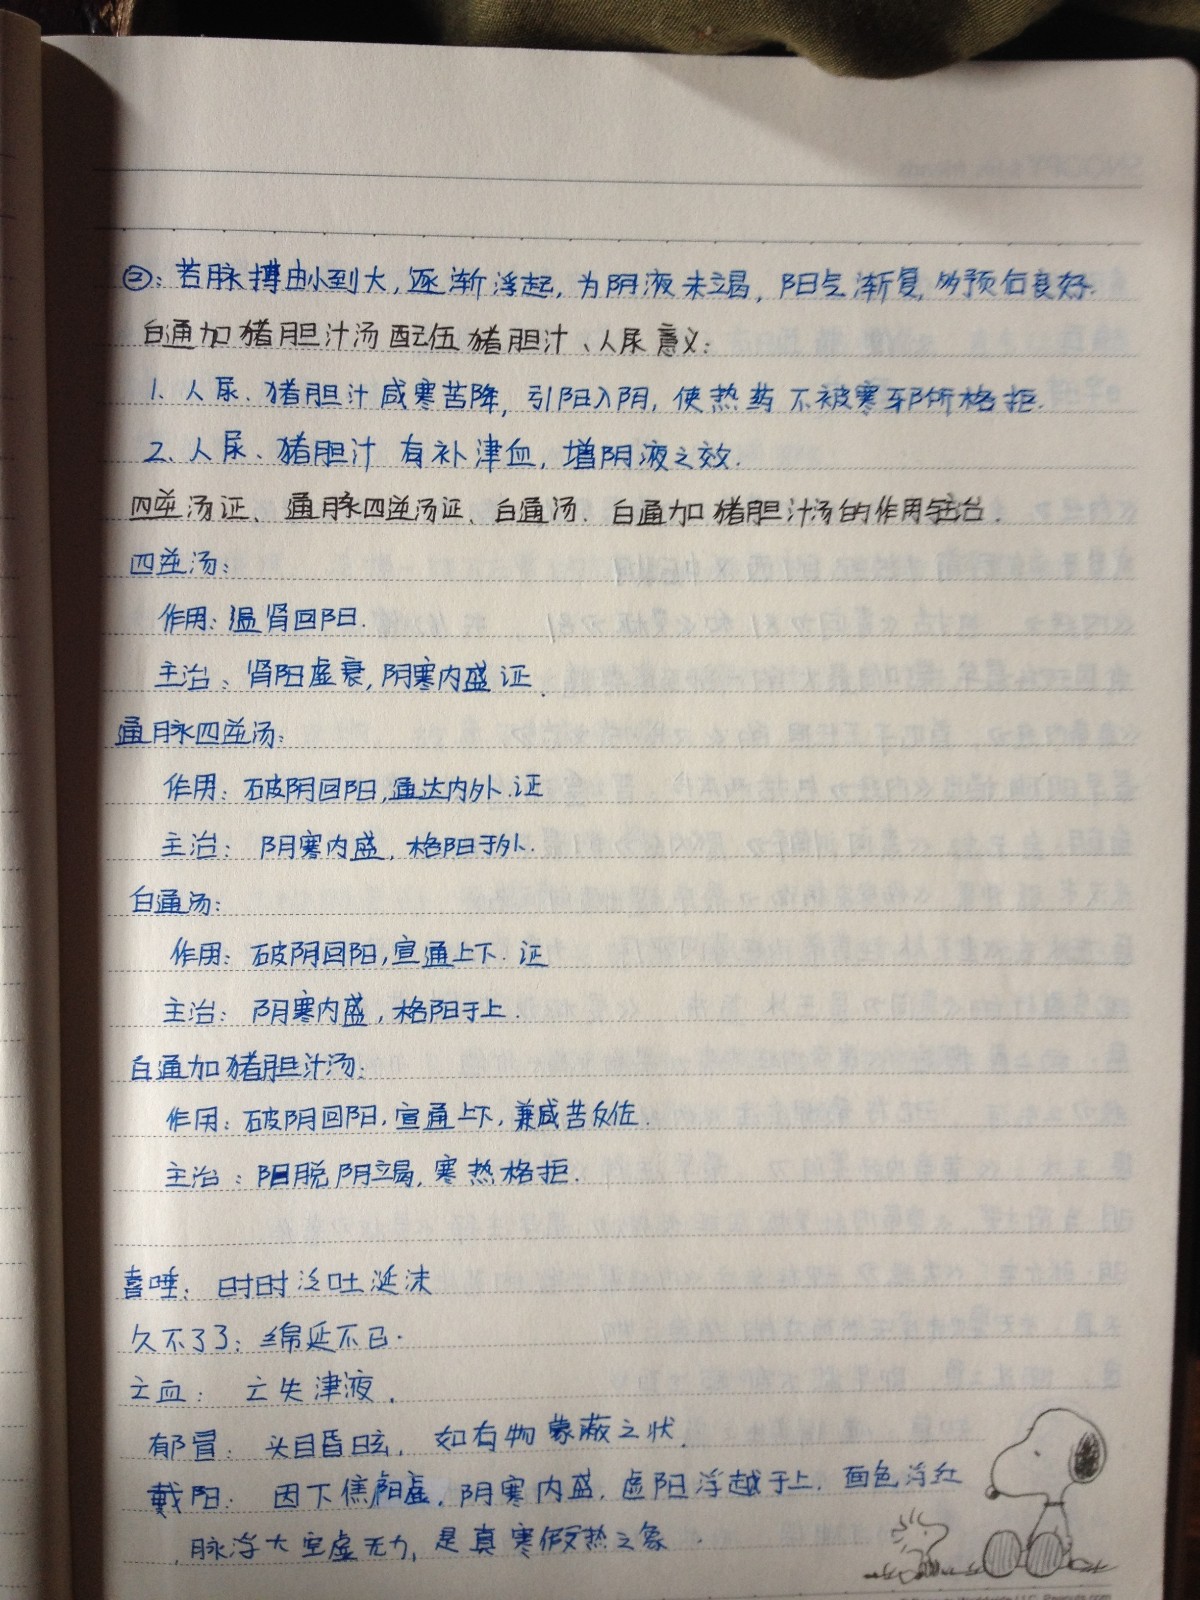 ②:若脉搏由小到大,逐渐浮起,为阴液未竭,阳气渐复,为预后良好.
白通加猪胆汁汤配伍猪胆汁、人尿意义:
1. 人尿、猪胆汁咸寒苦降,引阳入阴,使热药不被寒邪所格拒.
2. 人尿、猪胆汁有补津血,增阴液之效.
四逆汤证、通脉四逆汤证、白通汤、白通加猪胆汁汤的作用与主治.
四逆汤:
作用:温肾回阳.
主治、肾阳虚衰,阴寒内盛证.
通脉四逆汤:
作用:破阴回阳,通达内外.证
主治:阴寒内盛,格阳于外.
白通汤:
作用:破阴回阳,宣通上下.证
主治:阴寒内盛,格阳于上.
白通加猪胆汁汤:
作用:破阴回阳,宣通上下,兼咸苦反佐.
主治:阳脱阴竭,寒热格拒.
喜唾:时时泛吐涎沫
久不了了:绵延不已.
亡血:亡失津液.
郁冒:头目昏眩,如有物蒙蔽之状.
戴阳:因下焦阳虚,阴寒内盛,虚阳浮越于上.面色浮红
脉浮大空虚无力,是真寒假热之象.